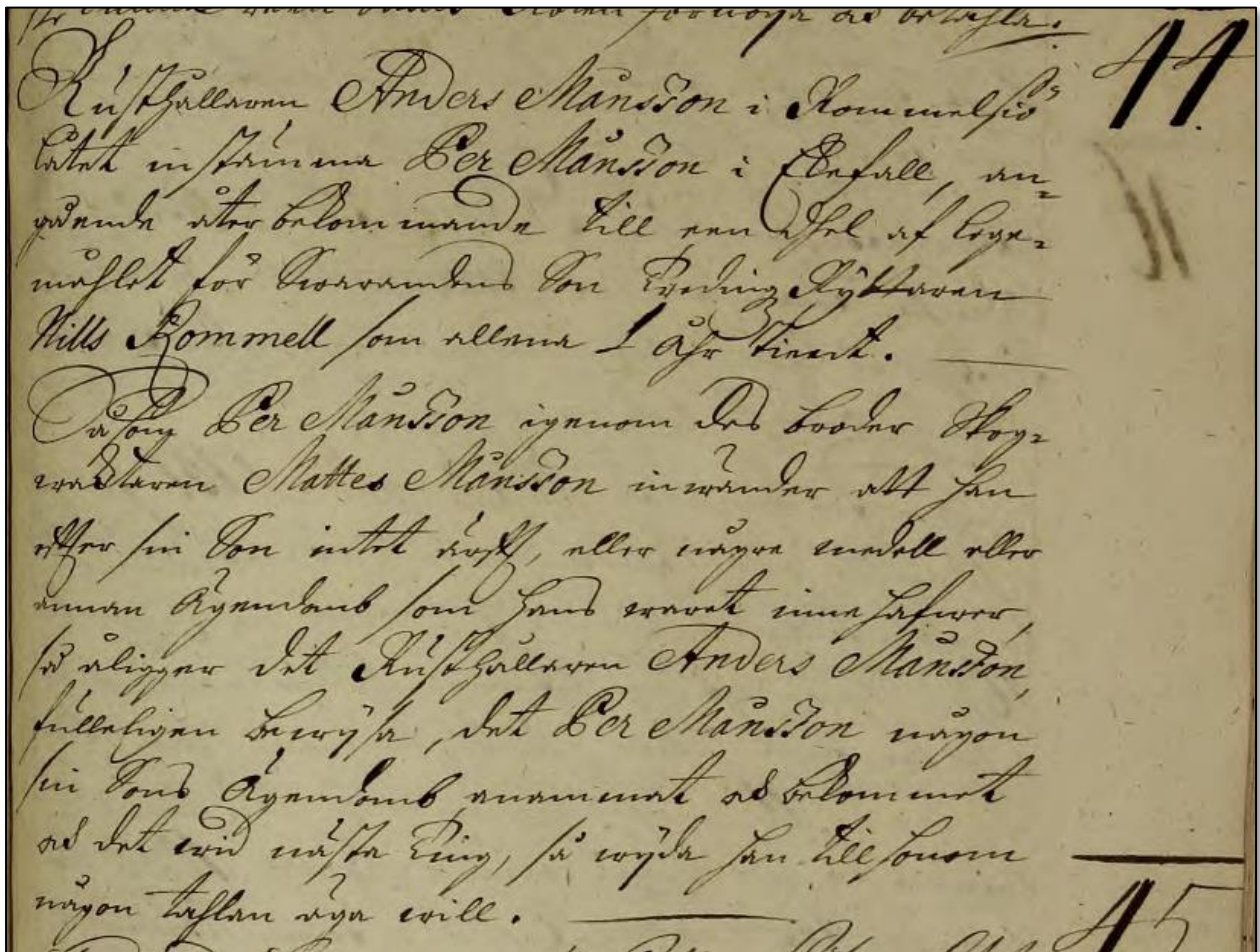 förnöya att betahla.
44
Rusthållaren Anders Månsson i Rommelsiö
låtet instämma Per Månsson i Ekefall, an=
gående återbekommande till een dhel af lego=
mahlet för Swarandens Son Ryttaren
Nills Rommell som allena 1 åhr tient.
Såsom Per Månsson igenom des broder Skog=
wachtaren Mattes Månsson inwänder att han
efter sin Son intet ärft, eller någre medell eller
annan Ägendomb som hans warit innehafwer,
så åligger det Rusthållaren Anders Månsson,
fulleligen bewijsa, det Per Månsson någon
sin Sons Ägendomb anammat och bekommet
och det wid nästa Ting, så wijda han till honom
någon tahlan äga will.
45